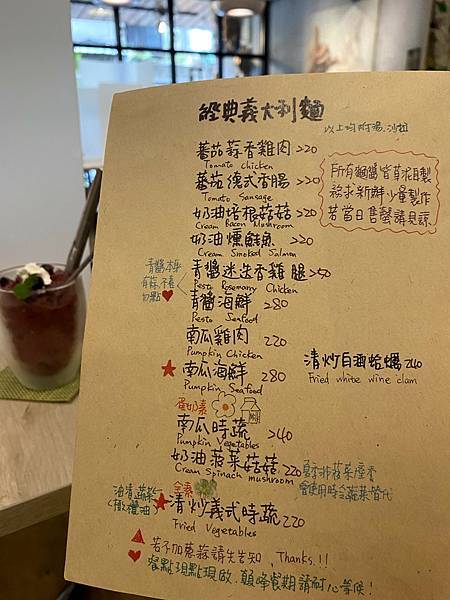 經典義大利麵
以上均附湯.沙拉
蕃茄蒜香雞肉 220
Tomato chicken
蕃茄德式香腸 220
Tomato Sausage
奶油培根菇菇 220
Cream Bacon Mushroom
奶油燻鮭魚 220
Cream Smoked Salmon
青醬迷迭香雞腿 250
Pesto Rosemary Chicken
青醬海鮮 280
Pesto Seafood
南瓜雞肉 220
Pumpkin Chicken
南瓜海鮮 280
Pumpkin Seafood
蛋奶素
南瓜時蔬 240
Pumpkin Vegetables
奶油菠菜菇菇 220
Cream Spinach mushroom
全素
清炒義式時蔬 220
Fried Vegetables
若不加蔥蒜請先告知, Thanks.!!
餐點現點現做,顛峰餐期請耐心等候!
所有麵醬皆草泥自製
務求新鮮少量製作
若當日售罄請見諒
青醬本身
有蒜,不吃
勿點
清炒白酒蛤蠣 240
Fried white wine clam
夏季非菠菜產季
會使用時令蔬菜替代
油漬蔬菜